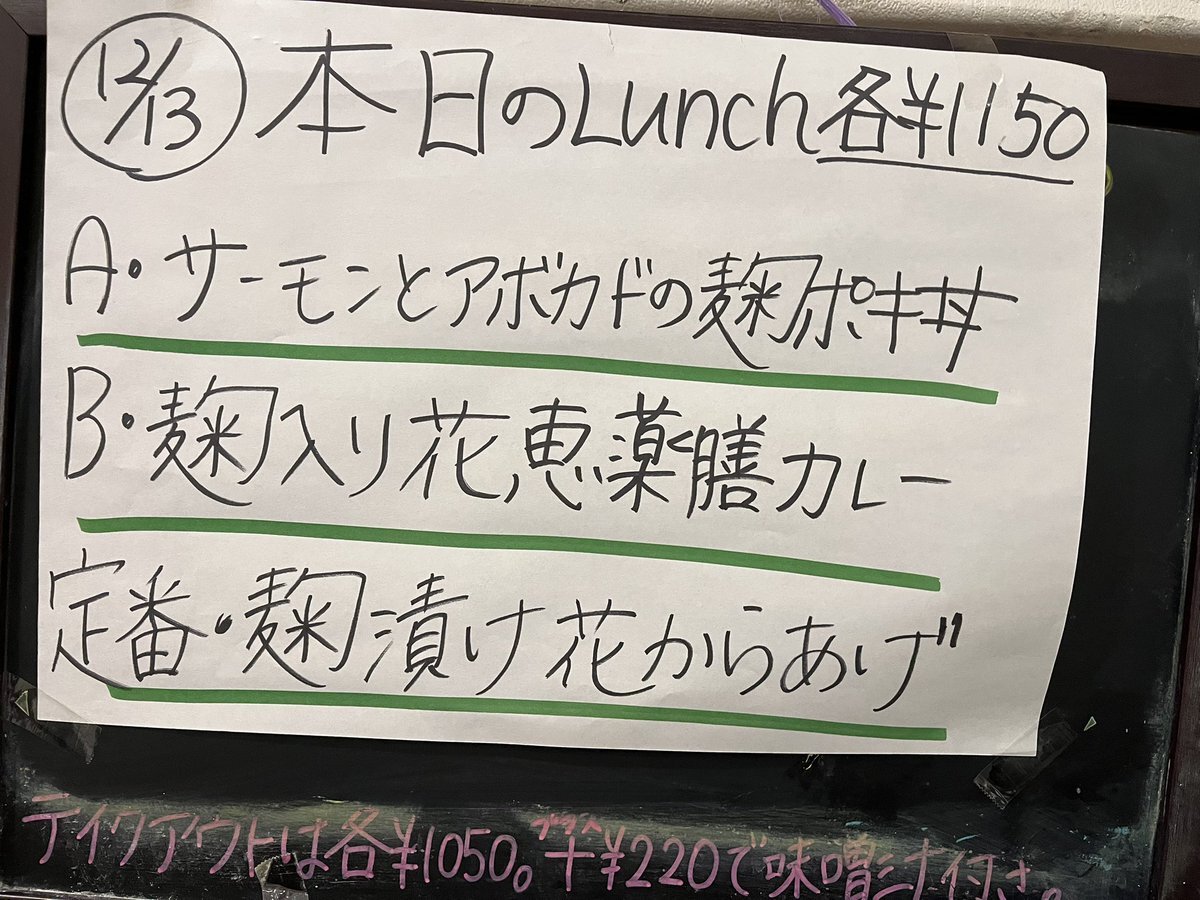 12/13 本日のLunch各¥1150
A・サーモンとアボカドの麹ポキ丼
B・麹入り花恵薬膳カレー
定番・麹漬け花からあげ
テイクアウトは各¥1050。プラス+¥220で味噌汁付き。